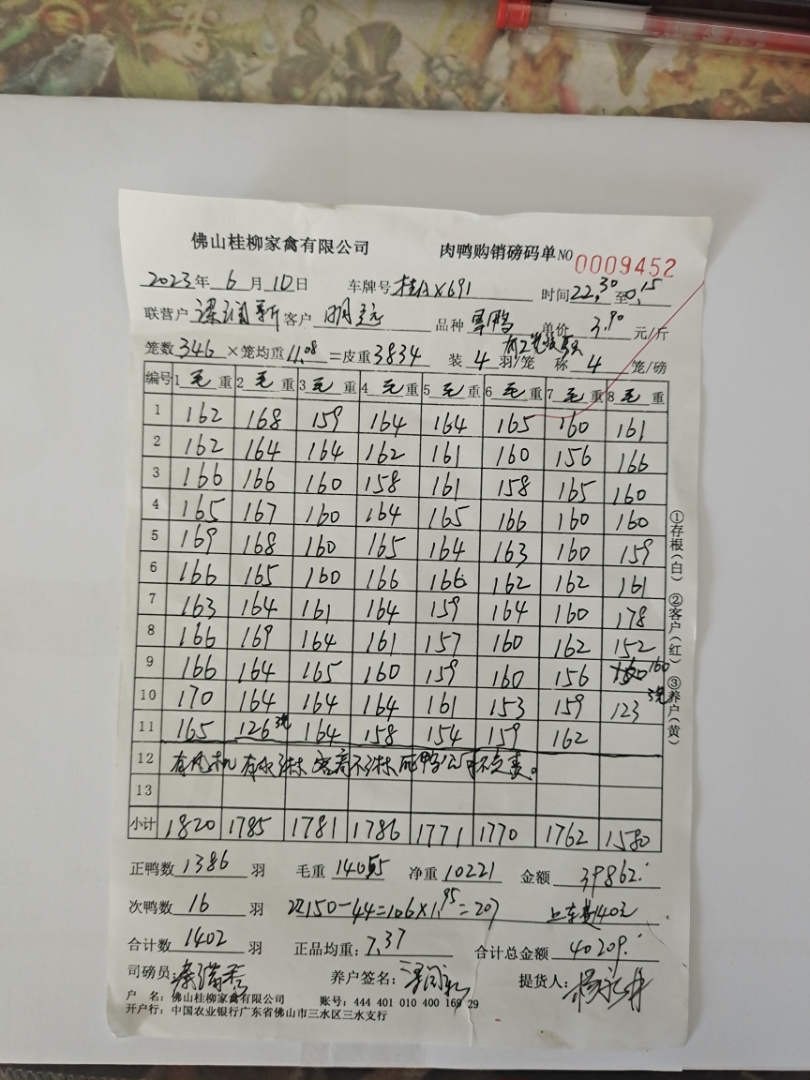 佛山桂柳家禽有限公司 肉鸭购销磅码单 NO 0009452
2023年 6 月 10 日 车牌号 桂AX691 时间 22.30 至 0.15
联营户 新 客户 明 品种 鸭 单价 3.90 元/斤
笼数 346 ×笼均重 11.08 =皮重 3834 装 4 羽/笼 称 4 笼/磅
编号 1 毛 重 2 毛 重 3 毛 重 4 毛 重 5 毛 重 6 毛 重 7 毛 重 8 毛 重
1 162 168 159 164 164 165 160 161
2 162 164 164 162 161 160 156 166
3 166 166 160 158 161 158 165 160
4 165 167 160 164 165 166 160 160
5 169 168 160 165 164 163 160 159
6 166 165 160 166 166 162 162 161
7 163 164 161 164 159 164 160 178
8 166 169 164 161 157 160 162 152
9 166 164 165 160 159 160 156 160
10 170 164 164 164 161 153 159 123 3笼
11 165 126 3笼 164 158 154 159 162
12 有风机 有水淋 客商不淋 死鸭公司不负责。
13
小计 1820 1785 1781 1786 1771 1770 1762 1580
正鸭数 1386 羽 毛重 14055 净重 10221 金额 39862.
次鸭数 16 羽 150-44=106×1.95=207 上车费140元
合计数 1402 羽 正品均重: 7.37 合计总金额 40209.
司磅员: 养户签名: 提货人:
户 名: 佛山桂柳家禽有限公司 账号: 444 401 010 400 169 29
开户行: 中国农业银行广东省佛山市三水区三水支行
①存根(白) ②客户(红) ③养户(黄)